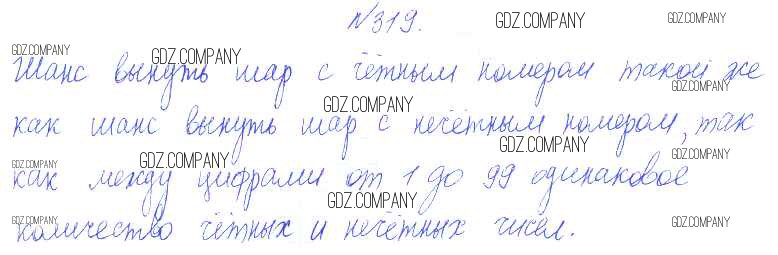 №319.
GDZ.COMPANY GDZ.COMPANY
GDZ.COMPANY GDZ.COMPANY
Шанс вынуть шар с чётным номером такой же
GDZ.COMPANY GDZ.COMPANY
как шанс вынуть шар с нечётным номером, так
GDZ.COMPANY GDZ.COMPANY GDZ.COMPANY GDZ.COMPANY
как между цифрами от 1 до 99 одинаковое
GDZ.COMPANY GDZ.COMPANY GDZ.COMPANY
количество чётных и нечётных чисел.